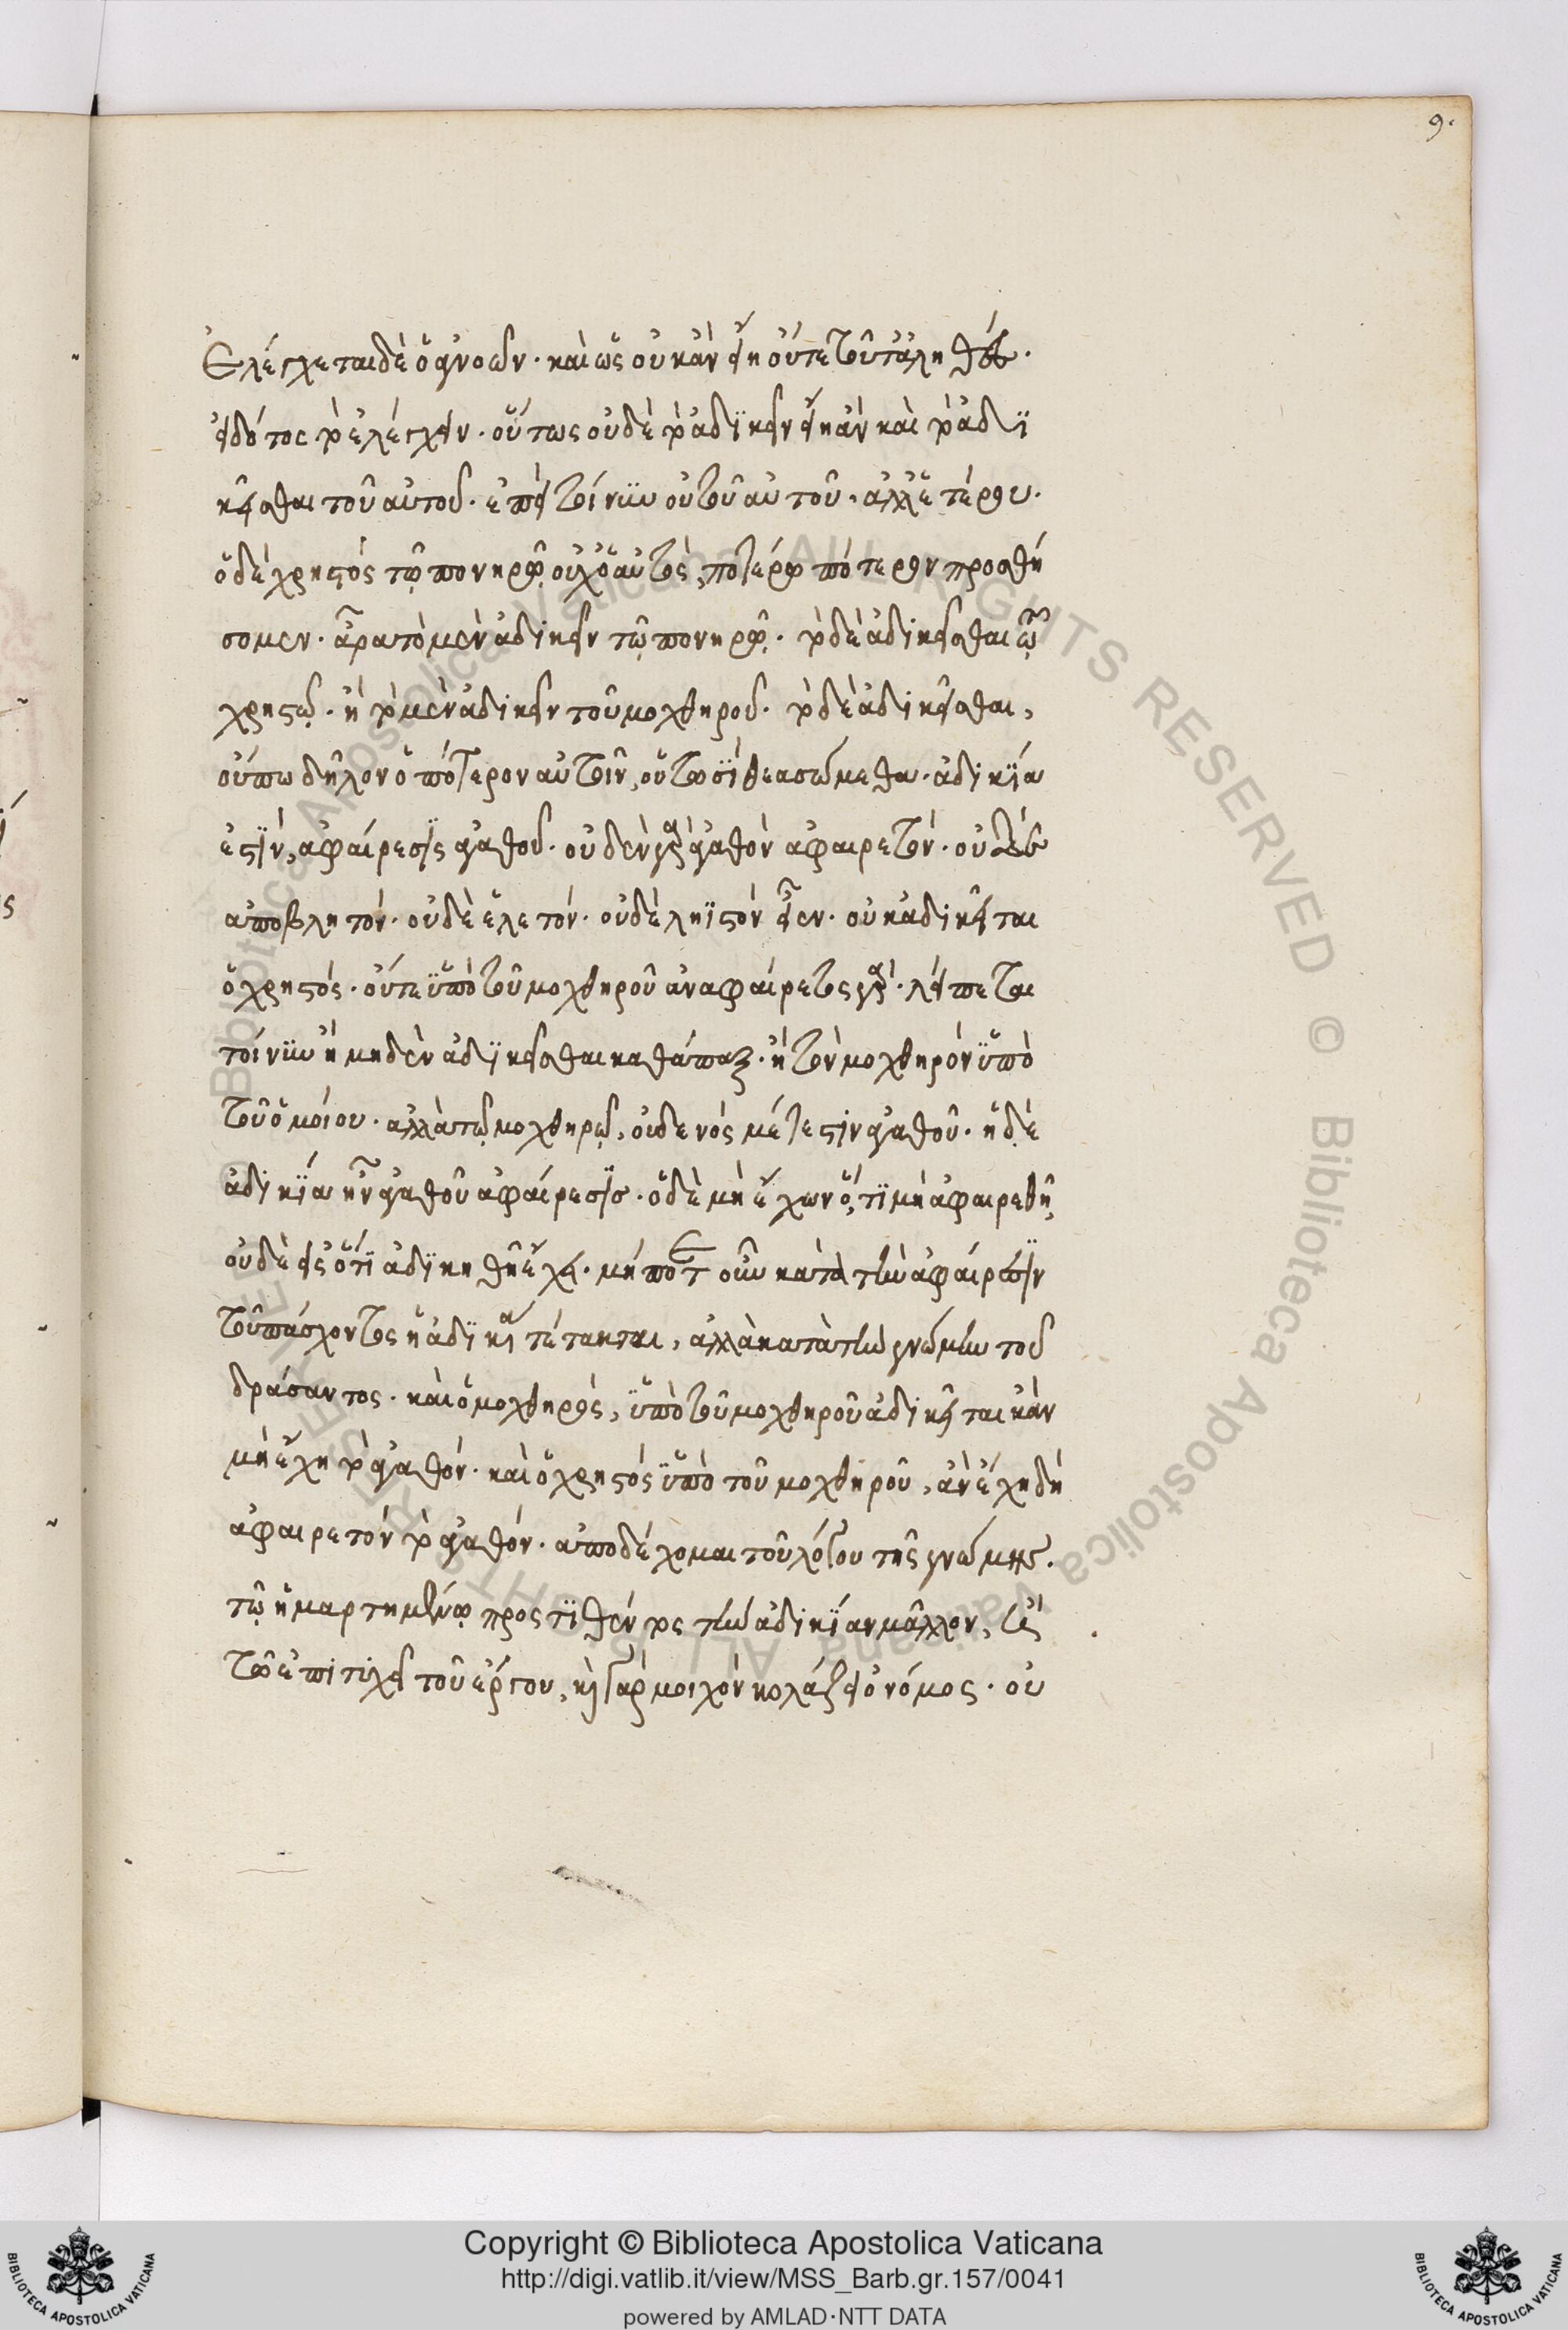 9.
Ἐλέγχεται δὲ ὁ ἀγνοῶν. καὶ ὡς οὐκ ἂν εἴη οὔτε τοῦ τἀληθὲς
εἰδότος τὸ ἐλέγχειν. οὕτως οὐδὲ τὸ ἀδϊκεῖν εἴη ἂν καὶ τὸ ἀδϊ
κεῖσθαι τοῦ αὐτοῦ. ἐπεὶ τοίνϋν οὐ τοῦ αὐτοῦ. ἀλλ' ἑτέρου.
ὁ δὲ χρηστός τῷ πονηρῷ οὐχ ὁ αὐτὸς, ποτέρῳ πότερον προσθή
σομεν. ἆρα τὸ μὲν ἀδικεῖν τῷ πονηρῷ. τὸ δὲ ἀδικεῖσθαι τῷ
χρηστῷ. ἢ τὸ μὲν ἀδικεῖν τοῦ μοχθηροῦ. τὸ δὲ ἀδικεῖσθαι,
οὔπω δῆλον ὁπότερον αὐτοῖν, οὑτωσῒ θεασώμεθα. ἀδικΐα
ἐστῒν, ἀφαίρεσϊς ἀγαθοῦ. οὐδὲν γὰρ ἀγαθὸν ἀφαιρετὸν. οὐδὲ
ἀποβλητόν. οὐδὲ ἑλετόν. οὐδὲ ληϊστόν εἶεν. οὐκ ἀδικεῖται
ὁ χρηστός. οὔτε ϋπὸ τοῦ μοχθηροῦ ἀναφαίρετος γάρ. λείπεται
τοίνϋν ἢ μηδὲν ἀδϊκεῖσθαι καθάπαξ. ἢ τὸν μοχθηρόν ϋπὸ
τοῦ ὁμοίου. ἀλλὰ τῷ μοχθηρῷ, οὐδενός μέτεστιν ἀγαθοῦ. ἡ δὲ
ἀδικΐα ἦν ἀγαθοῦ ἀφαίρεσϊς. ὁ δὲ μὴ ἔχων ὅ,τϊ μὴ ἀφαιρεθῇ,
οὐδὲ εἰς ὅτϊ ἀδϊκηθῇ ἔχει. μήποτε οὖν κατὰ τὴν ἀφαίρεσϊν
τοῦ πάσχοντος ἡ ἀδϊκία τέτακται, ἀλλὰ κατὰ τὴν γνώμην τοῦ
δράσαντος. καὶ ὁ μοχθηρὸς, ϋπὸ τοῦ μοχθηροῦ ἀδικεῖται κἂν
μὴ ἔχη τὸ ἀγαθόν. καὶ ὁ χρηστός ϋπὸ τοῦ μοχθηροῦ, ἂν ἔχη δὴ
ἀφαιρετόν τὸ ἀγαθόν. ἀποδέχομαι τοῦ λόγου τῆς γνώμης.
τῷ ἡμαρτημένῳ προστϊθέντος τὴν ἀδικΐαν μᾶλλον, ἢ
τῷ ἐπιτυχεῖ τοῦ ἔργου, καὶ γὰρ μοιχὸν κολάζει ὁ νόμος. οὐ
Copyright © Biblioteca Apostolica Vaticana
http://digi.vatlib.it/view/MSS_Barb.gr.157/0041
powered by AMLAD·NTT DATA